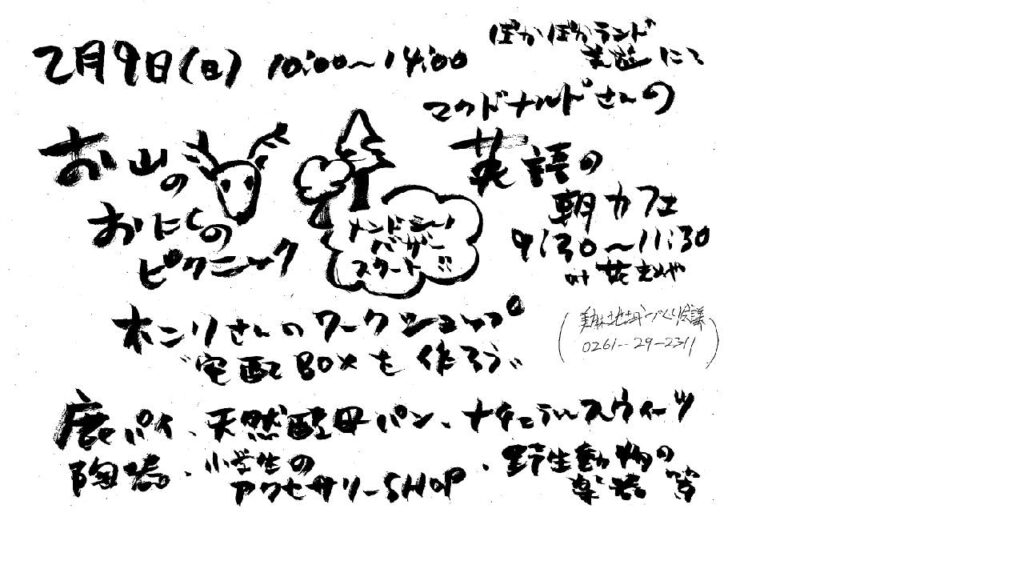 2月9日(日) 10:00〜14:00
ぽかぽかランド
美麻にて
マクドナルドさんの
英語の
朝カフェ
9:30〜11:30
at 花まめや
お山の
おにくの
ピクニック
バザー
スタート!!
ホンリさんのワークショップ
"宅配BOXを作ろう"
(美麻地域づくり会議
0261-29-2311)
鹿パイ、天然酵母パン、ナチュラルスウィーツ
陶器・小学生の
アクセサリーSHOP・野生動物の
楽器 等